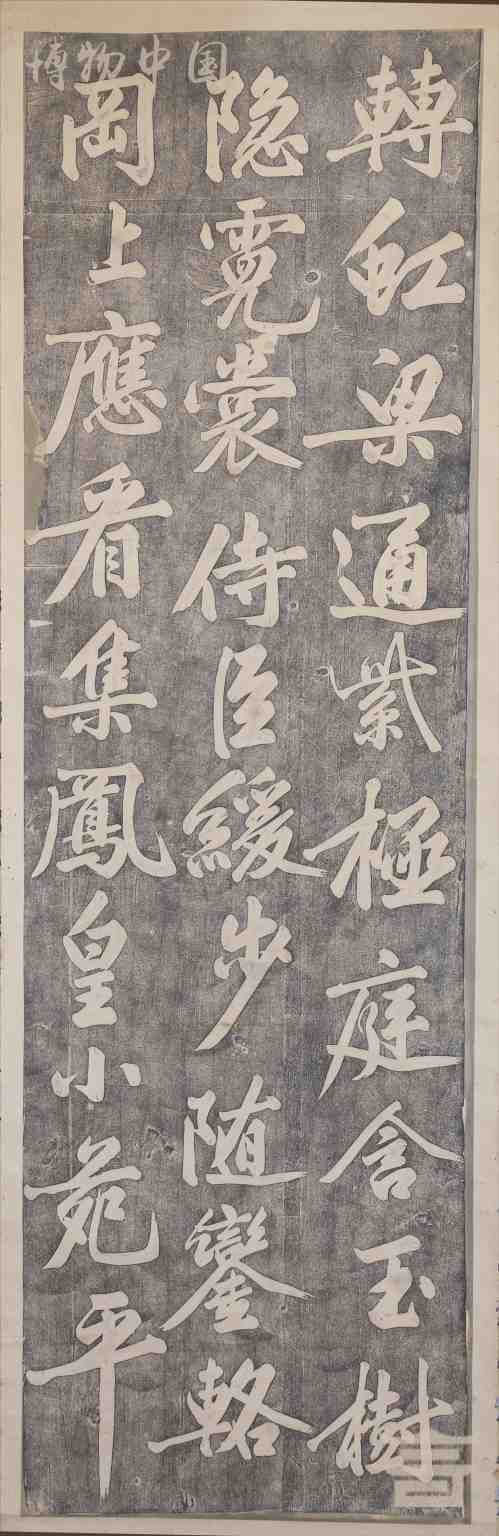 博物中国
轉虹梁通紫極庭含玉樹
隐霓裳侍臣緩步随鑾輅
岡上應看集鳳皇小苑平